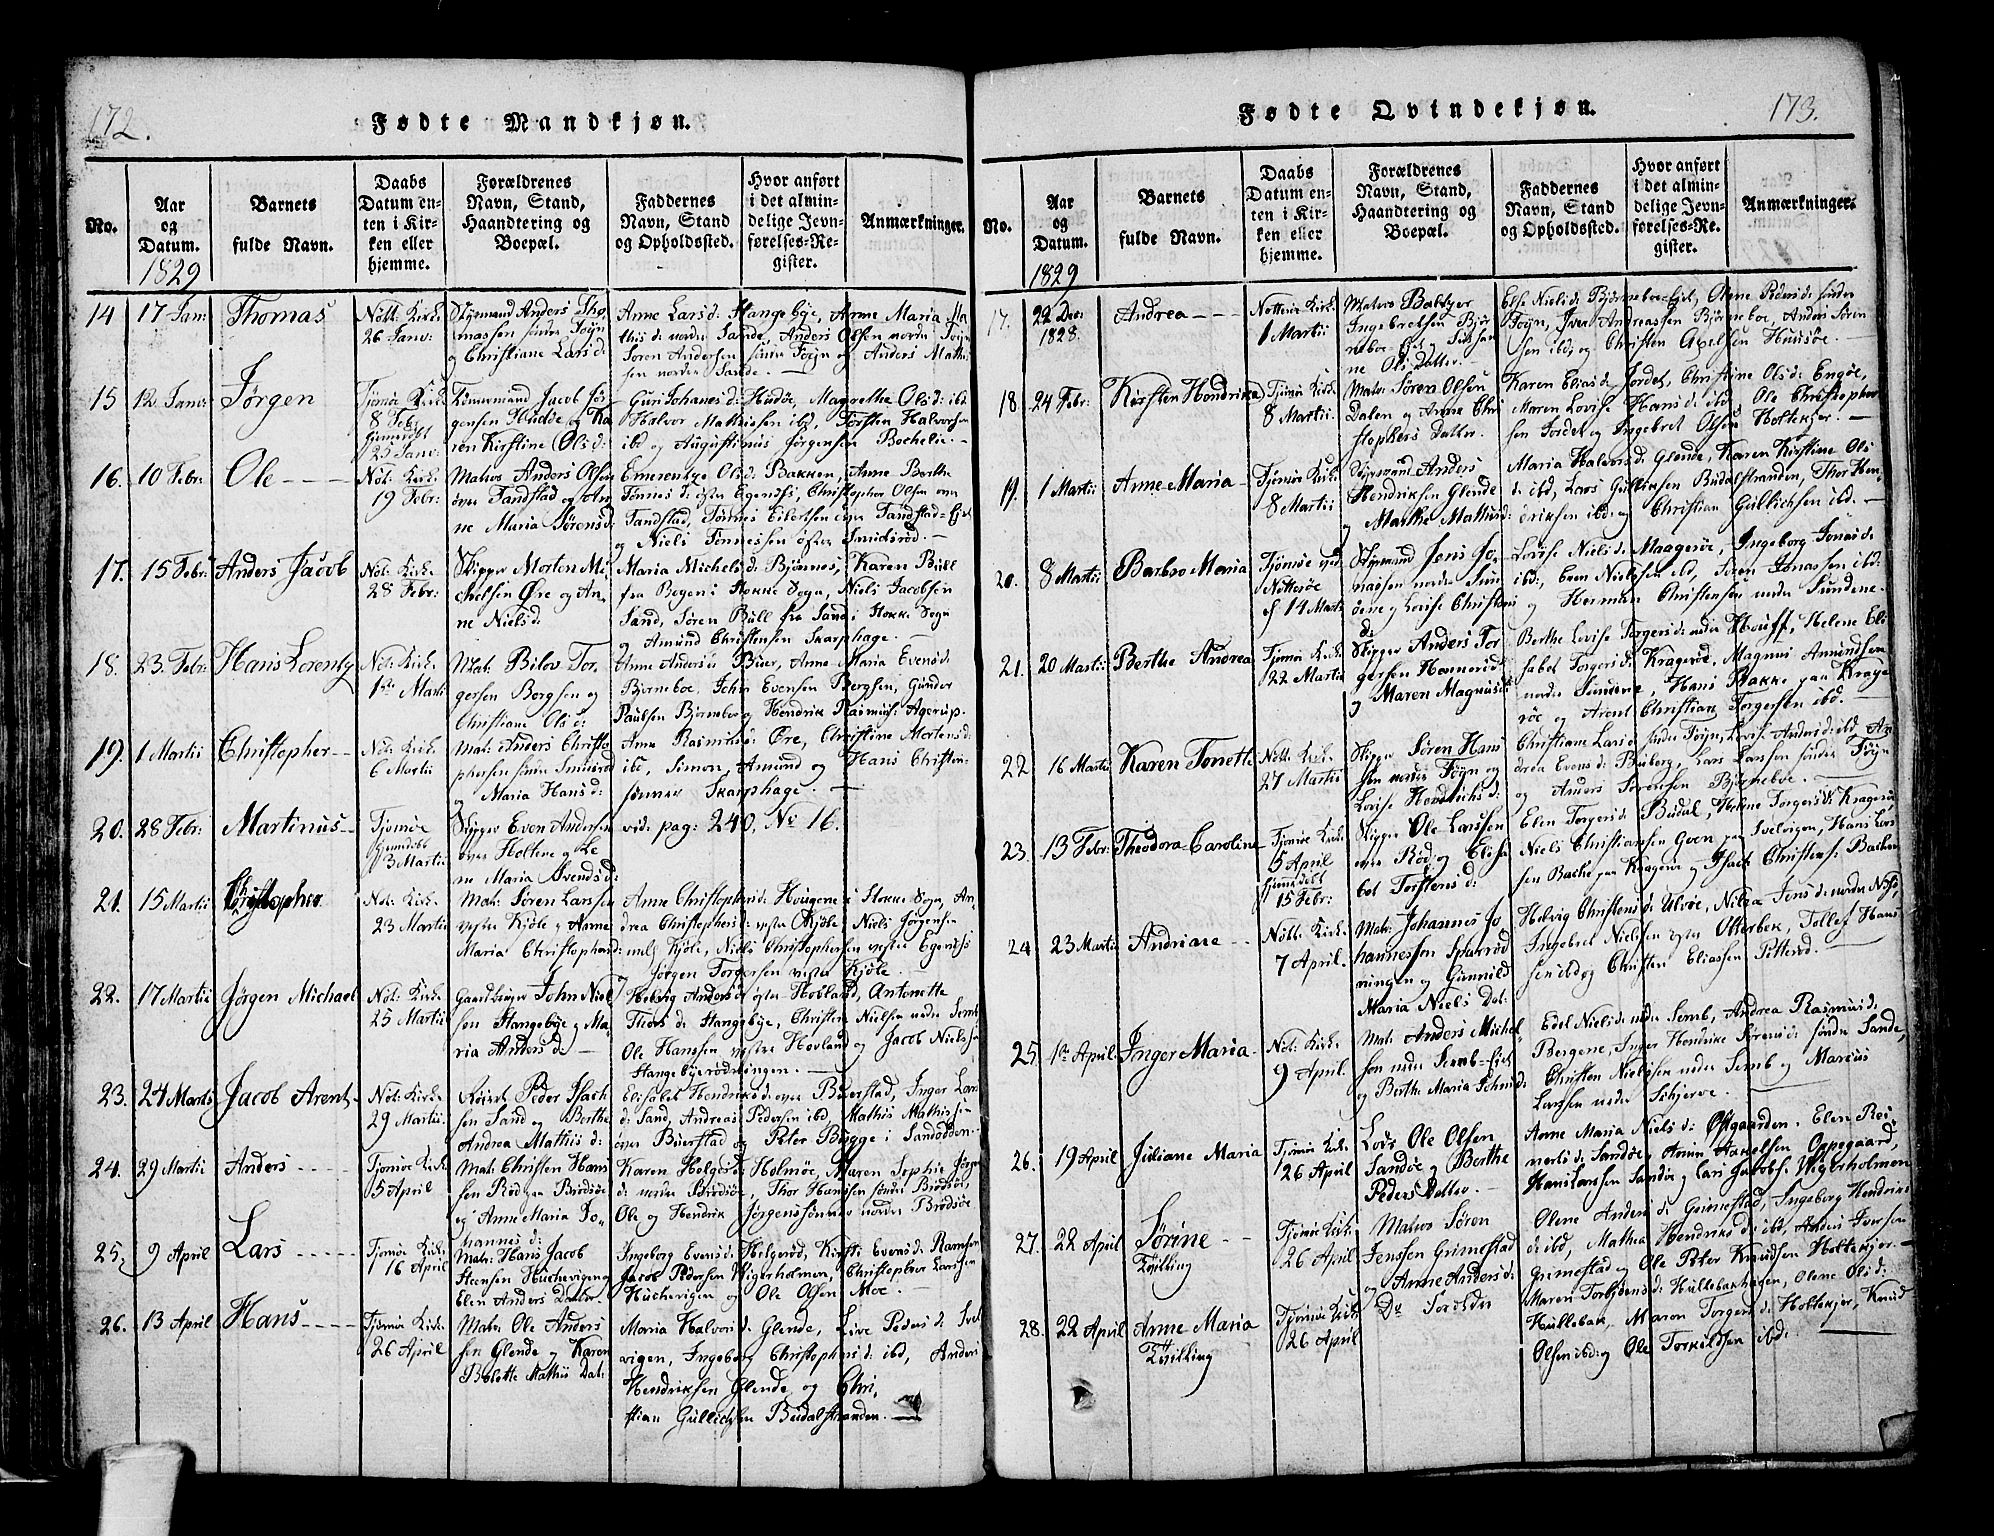 172.
Fødte Mandkjøn.
No.
Aar og Datum.
1829
Barnets fulde Navn.
Daabs Datum enten i Kirken eller hjemme.
Forældrenes Navn, Stand, Haandtering og Boepæl.
Faddernes Navn, Stand og Opholdssted.
Hvor anført i det almindelige Jevnførelses-Register.
Anmærkninger.
14 17 Jan: Thomas
Nött. Kirk:
26 Janv:
Anders Tho
massen
Christiane Lars d:
Anne Lars d: Hangebye, Anne Maria Ma
this d: nordre Sande, Anders Olsen nordre Föyn
Sören Andersen söndre Föyn og Anders Mathi
sen nordre Sande.
15 12 Janv: Jørgen
Tjømöe Kirk
8 Febr
hjemdöbt
25 Janv:
Jacob Jör
gensen Hudöe og Ka
ren Kirstine Ols d:
Guri Johanes d: Hudöe, Magrethe Ols d: ibd
Halvor Mathiesen ibd, Torsten Halvorsen
ibd og Augustinus Jörgensen Bochelie.
16. 10 Febr: Ole
Nöt: Kirk:
19 Febr:
Matros Anders Olsen
övre Tandstad og An
ne Maria Sörens d:
Emerentze Ols d: Bakken, Anne Berthe
Tönnes d: östre Egenæss, Christopher Olsen övre
Tandstad, Tönnes Eilertsen övre Tandstad-Eje
og Niels Tönnessen östre Smidsröd.
17. 15 Febr: Anders Jacob
Nöt: Kirk:
28 Febr:
Skipper Morten Mi
chelsen Öre og An
ne Niels d:
Maria Michels d: Bjönnes, Karen Büll
fra Bogen i Stokke Sogn, Niels Jacobsen
Sand, Sören Büll fra Sand i Stokke Sogn
og Amund Christensen Skarphage.
18. 23. Febr: Hans Lorentz
Nöt: Kirk:
1ste Marti
Mat: Bilov Tor
gersen Borgsen og
Christiane Ols d:
Anne Anders d: Buer, Anne Maria Evens d:
Bjorneboe, John Evensen Bergsen, Gunder
Paulsen Bjorneboe og Hendrik Rasmus: Agerup.
19. 1 Martii Christopher
Nöt: Kirk:
6 Martii
Mat: Anders Christo
phersen söndre Smidsröd
og Maria Hans d:
Anne Rasmus d: Öre, Christine Mortens d:
ibd, Simon, Amund og Hans Christen-
sönner Skarphage.
20. 28 Febr: Martinus
Tjømöe
hjemdöbt
3 Martii
Skipper Even Andersen
övre Holtene og Le
ne Maria Svends d:
vid: pag: 240, No 16.
21. 15 Martii Christopher
Nöt: Kirk:
23 Martii
Mat: Sören Larsen
vestre Kjöle og Anne
Maria Christophers d:
Anne Christophers d: Hougene i Stokke Sogn, An
drea Christophers d: vestre Kjöle, Niels Jörgens:
mel: Kjöle, Niels Christophersen vestre Egenæss
Jörgen Torgersen vestre Kjöle.
22. 17 Martii Jørgen Michael
Nöt: Kirk:
25 Martii
Gaardbruger John Niel
sen Hangebye og Ma
ria Anders d:
Helvig Anders d: östre Hovland, Antonette
Thors d: Hangebye, Christen Nielsen nedre Semb
Ole Hanssen vestre Hovland og Jacob Nielsen
Hangebyerödningen.
23. 24 Martii Jacob Arent
Nöt: Kirk:
29 Martii
Peder Isach
sen Sand og Berthe
Andrea Mathis d:
Elisabet Hendriks d: övre Buerstad, Inger Lars
d: Sand, Andreas Pedersen ibd, Mathis Mathis:
övre Buerstad og Peter Bugge i Sandodden.
24. 29 Martii Anders
Tjomöe Kirk
5 April
Mat: Christen Hans
sen Röd paa Brödsöe
og Anne Maria Jo-
hannes d:
Karen Holgers d: Holmöe, Maren Sophie Jörgen
d: nordre Brödsöe, Thor Hanssen söndre Brödsöe,
Ole og Hendrik Jörgenssönner nordre Brödsöe
25. 9 April Lars
Tjömöe Kirk:
16 April
Mat: Hans Jacob
Steensen Hüchevigen og
Elen Anders Datter
Ingeborg Evens d: Holgeröd, Kirsti Evens d: Ramsen
Jacob Pedersen Vigerholmen, Christopher Larssen
Hüchevigen og Ole Olsen Moe.
26. 13 April Hans
Tjömöe Kirk:
26 April
Mat: Ole Anders
sen Glende og Karen
Bolette Mathis Dat:
Maria Halvors d: Glende, Live Peders d: Svel
vigen, Ingeborg Christophers d: ibd, Anders
Hendriksen Glende og Chri,
stian Gullichsen Budalstranden.
173.
Fødte Qvindekjøn.
No.
Aar og Datum.
1829
Barnets fulde Navn.
Daabs Datum enten i Kirken eller hjemme.
Forældrenes Navn, Stand, Haandtering og Boepæl.
Faddernes Navn, Stand og Opholdssted.
Hvor anført i det almindelige Jevnførelses-Register.
Anmærkninger.
17. 22 Dec: 1828. Andrea
Nötteröe Kirk:
1 Martii
Matros
Ingebretsen Björ
neboe-Ejet og
ne Ols Datter.
Else Niels d: Bjorneboe-Ejet, Olene Peders d: söndre
Föyn, Iver Andreassen Bjørneboe, Anders Sören
sen ibd, og Christen Axelsen Huusöe.
18. 24 Febr: Kirsten Hendrikke
Tjömöe Kirk:
8 Martii
Matr: Sören Olsen
Dalen og Anne Chri
stophers Datter.
Karen Elias d: Jordet, Christine Ols d: Engöe,
Maren Lovise Hans d: ibd Ole Christopher
sen Jordet og Ingebret Olsen Holtekjer.
19. 1 Martii Anne Maria
Tjömöe Kirk:
8 Martii
Anders
Hendriksen Glende
og Marthe Mathis d:
Maria Halvors d: Glende, Karen Kirstine Ols
d: ibd, Lars Gulliksen Budalstranden, Thor Hen-
driksen ibd: og Christian Gullichsen ibd.
20. 8 Martii Barbro Maria
Tjömöe ved
Nötteröe
d 14 Marti
Jens Jo
nassen nordre Sun
dene og Lovise Christens
d:
Lovise Niels d: Maageröe, Ingeborg Jonas d:
ibd:, Even Nielssen ibd, Sören Jonassen ibd:
og Herman Christensen nedre Sundene.
21. 20 Martii Berthe Andrea
Tjömöe Kirk:
22 Martii
Skipper Anders Tor
gersen
og Maren Magnus d:
Berthe Lovise Torgers d: nedre Houff, Helene Eli
sabet Torgers d: Krageröe, Magnus Amundsen
nordre Sundene, Hans Bakke paa Krage
röe og Arent Christian Torgersen ibd.
22 16 Martii Karen Tonette
Nött: Kirk:
27 Martii
Skipper Sören Hans
sen nordre Föyn og
Lovise Hendrichs d:
Christiane Lars d: söndre Föyn, Lovise Anders d: ibd, An
drea Evens d: Buberg, Lars Larssen söndre Föyn
og Anders Sörensen Bjorneboe.
23. 13 Febr: Theodora Caroline
Tjömöe Kirk:
5 April
hjemdöbt
15 Febr:
Skipper Ole Larssen
övre Röd og Elisa
bet Torstens d:
Elen Torgers d: Budal, Helene Torgers d: Krageröe
Niels Christianssen Goen paa Svelvigen, Hans Lars
sen Bache paa Krageröe og Isach Christens: Bachen
24 23 Martii Andriane
Nött: Kirk:
7 April.
Mat: Johannes Jo
hannessen Sparröd
ningen og Gunnild
Maria Niels Dat:
Helvig Christens d: Ulvöe, Nilia Jens d: nordre Næsöe,
Ingebret Nielssen östre Otterbek, Tollef Hans
sen ibd og Christen Eliassen Pitteröd.
25. 1ste April Inger Maria
Nöt: Kirk:
9 April.
Mat: Anders Michel
sen nedre Semb-Ejet
og Berthe Maria
Edel Niels d: nedre Semb, Andrea Rasmus d:
Bergene, Inger Hendrike Sörens d: söndre Sande,
Christen Nielssen nedre Semb og Marcus
Larssen nedre Schjerve.
26. 19 April Juliane Maria
Tjömöe Kirk:
26 April
Lods Ole Olsen
Sandöe og Berthe
Peders Datter.
Anne Maria Niels d: Østgaarden, Elen Rei
nerts d: Sandöe, Axelsen Oppegaard,
Hans Larssen Sandöe og Lars Jacobs: Vigerholmen
27. 22 April Sørine
Tvilling
Tjömöe Kirk:
26 April
Matros Sören
Jenssen Grimestad
og Anne Anders d:
Olene Anders d: Grimestad, Ingeborg Hendriks
d: ibd, Mathea Hendriks d: ibd, Anders Iversen
Grimestad og Ole Peter Knudsen Holtekjer.
28. 22 April Anne Maria
Tvilling
Tjömöe Kirk
26 April
Do Foreldre
Maren Torbjörns d: Hüllebakhagen, Olene Ols d:
Hüllebak, Maren Torgers d: Holtekjer, Knud
Olsen ibd: og Ole Torkildsen ibd.